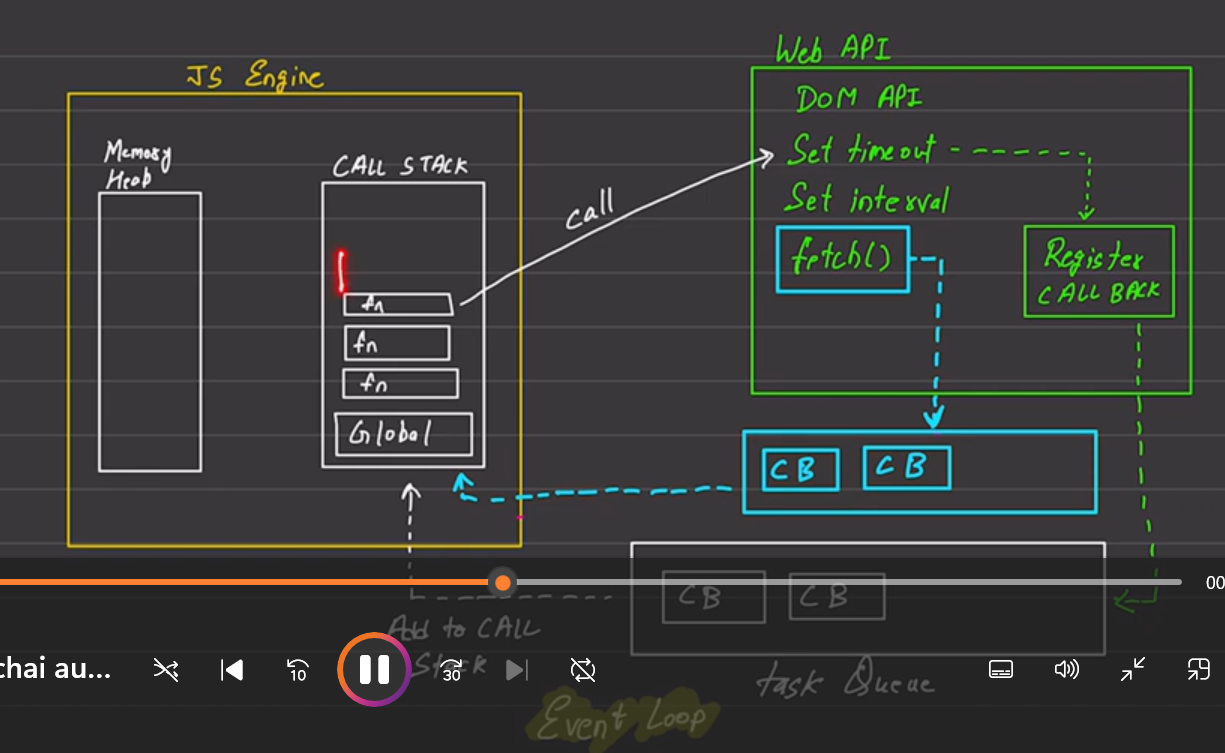 JS Engine
Memory
Heap
CALL STACK
fn
fn
fn
Global
call
Web API
DOM API
Set timeout
Set interval
fetch()
Register
CALL BACK
CB CB
CB CB
Add to CALL
Stack
task Queue
Event Loop
00
chai au...
10
30